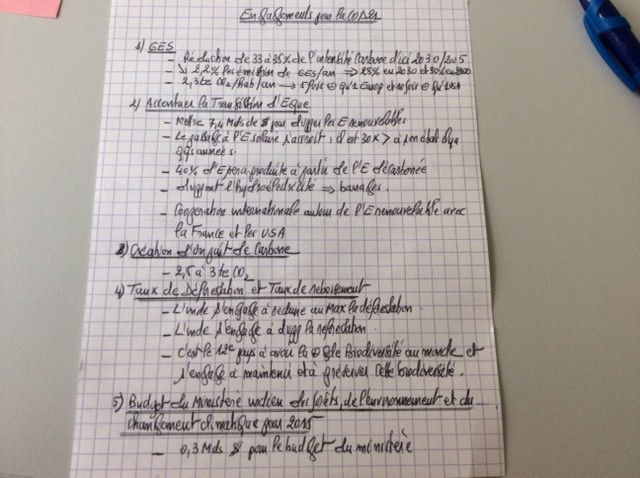 Engagements pour la COP21
1) GES
- Réduction de 33 à 35% de l'intensité carbone d'ici 2030/2005
- ↘ 2,2% les émission de GES/an ⇒ 25% en 2030 et 50% en
- 2,3 te CO2/hab/an → 5 fois ⊖ qu'1 Europ et 10 fois ⊖ qu'USA
2) Accentuer la Transition d'Eque
- Mettre 7,4 Mds de $ pour dvpper les E renouvelables
- Le passage à l'E solaire s'accroit, il est 30x > à son état il y a
qqs années.
- 40% d'E sera produite à partir de l'E décarbonée
- dvppmt l'hydroélectricité ⇒ barrages.
- Coopération internationale autour de l'E renouvelable avec
la France et les USA
3) Création d'un puit de carbone
- 2,5 à 3 te CO2
4) Taux de Déforestation et Taux de reboisement
- L'inde s'engage à réduire au Max la déforestation.
- L'inde s'engage à dvpp la reforestation.
- C'est le 12e pays à avoir la ⊕ gde biodiversité au monde et
s'engage à maintenir et à préserver cette biodiversité.
5) Budget du Ministère indien des forêts, de l'environnement et du
changement climatique pour 2015
- 0,3 Mds $ pour le budget du ministère